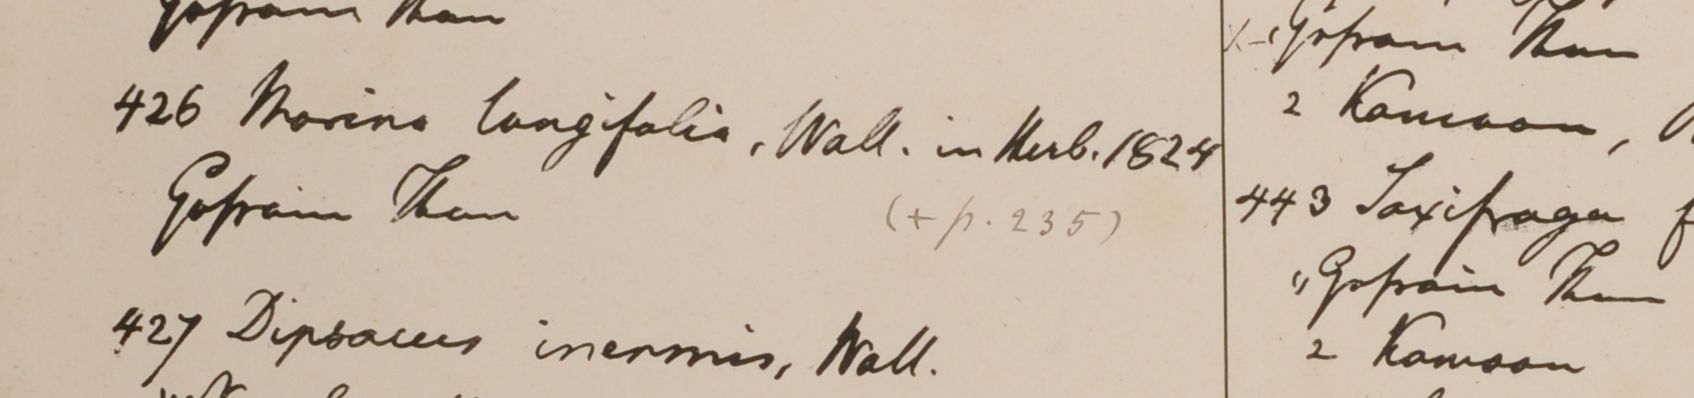 Gosrain Than
426 Morina longifolia, Wall. in Herb. 1824
Gosrain Than (+ p. 235)
427 Dipsacus inermis, Wall.
Gosrain Than
2 Kamaon,
443 Saxifraga
Gosrain Than
2 Kamaon